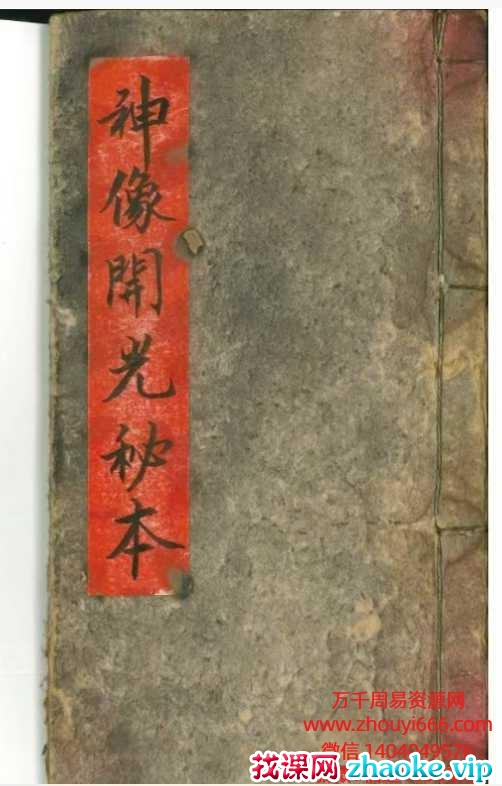 神像開光秘本
万千周易资源网
www.zhouyi666.com
找课网zhaoke.vip